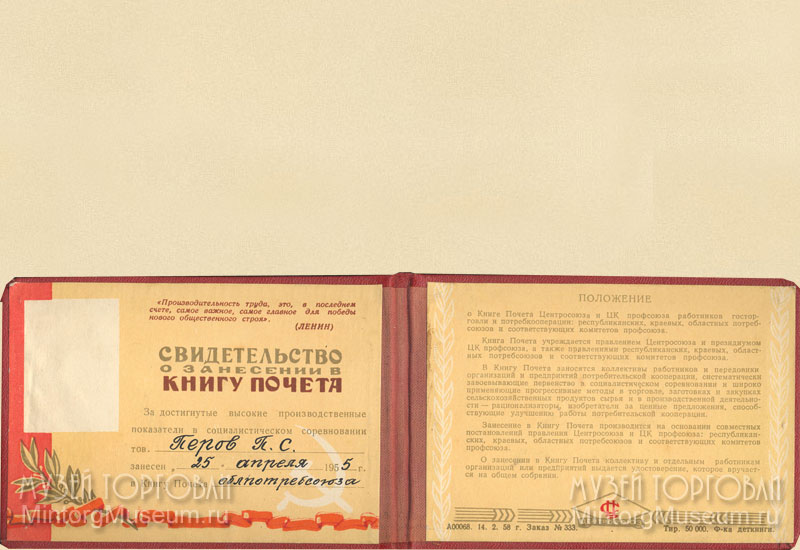 «Производительность труда, это, в последнем
счете, самое важное, самое главное для победы
нового общественного строя».
(ЛЕНИН)
СВИДЕТЕЛЬСТВО
О ЗАНЕСЕНИИ В
КНИГУ ПОЧЕТА
За достигнутые высокие производственные
показатели в социалистическом соревновании
тов. Перов П. С.
занесен „25 апреля 1955 г.
в Книгу Почета облпотребсоюза
МУЗЕЙ ТОРГОВЛИ
MintorgMuseum.ru
ПОЛОЖЕНИЕ
о Книге Почета Центросоюза и ЦК профсоюза работников гостор-
говли и потребкооперации; республиканских, краевых, областных потреб-
союзов и соответствующих комитетов профсоюза.
Книга Почета учреждается правлением Центросоюза и президиумом
ЦК профсоюза, а также правлениями республиканских, краевых, област-
ных потребсоюзов и соответствующих комитетов профсоюза.
В Книгу Почета заносятся коллективы работников и передовики
организаций и предприятий потребительской кооперации, систематически
завоевывающие первенство в социалистическом соревновании и широко
применяющие прогрессивные методы в торговле, заготовках и закупках
сельскохозяйственных продуктов сырья и в производственной деятельно-
сти — рационализаторы, изобретатели за ценные предложения, способ-
ствующие улучшению работы потребительской кооперации.
Занесение в Книгу Почета производится на основании совместных
постановлений правления Центросоюза и ЦК профсоюза; республикан-
ских, краевых, областных потребсоюзов и соответствующих комитетов
профсоюза.
О занесении в Книгу Почета коллективу и отдельным работникам
организаций или предприятий выдается удостоверение, которое вручает-
ся на общем собрании.
А00068. 14. 2. 58 г. Заказ № 333. Тир. 50 000. Ф-ка деткниги.
МУЗЕЙ ТОРГОВЛИ
MintorgMuseum.ru